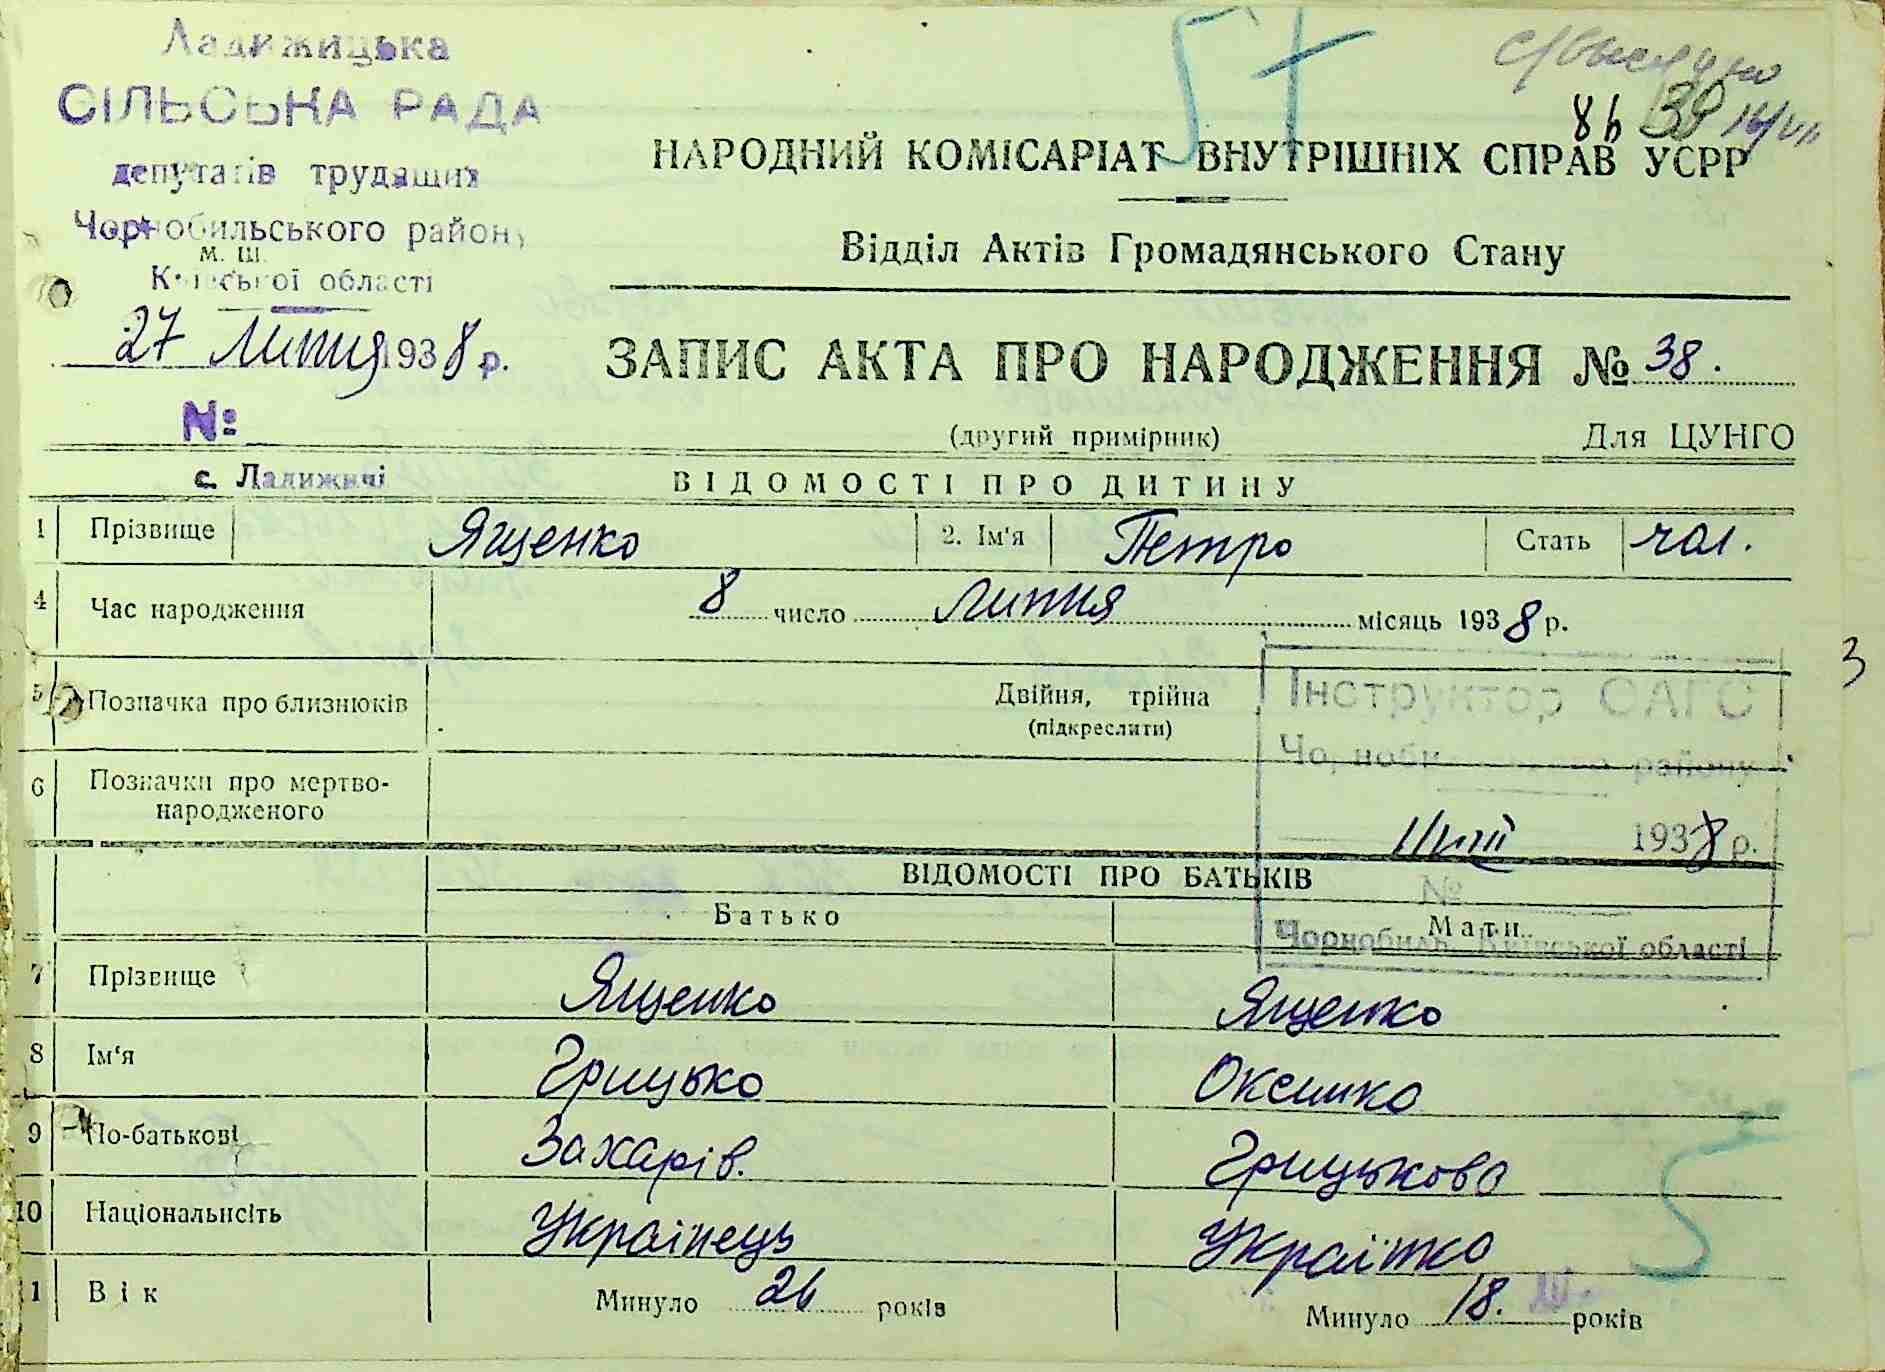 Ладижицька
СІЛЬСЬКА РАДА
депутатів трудящих
Чорнобильського району
м. ш.
Київської області
27 липня 1938 р.
№
с. Ладижичі
57
86 39
НАРОДНИЙ КОМІСАРІАТ ВНУТРІШНІХ СПРАВ УСРР
Відділ Актів Громадянського Стану
ЗАПИС АКТА ПРО НАРОДЖЕННЯ № 38.
(другий примірник) Для ЦУНГО
ВІДОМОСТІ ПРО ДИТИНУ
1 Прізвище Ященко 2. Ім'я Петро Стать чол.
4 Час народження 8 число липня місяць 1938 р.
3
5 Позначка про близнюків Двійня, трійна
(підкреслити)
6 Позначки про мертво-
народженого
Інструктор ОАГС
Чорнобильського району
1938 р.
№
Чорнобиль, Київської області
ВІДОМОСТІ ПРО БАТЬКІВ
Батько Мати
7 Прізвище Ященко Ященко
8 Ім'я Грицько Оксинка
9 По-батькові Захарів. Грицькова
10 Національність Українець Українка
11 Вік Минуло 26 років Минуло 18. років
5